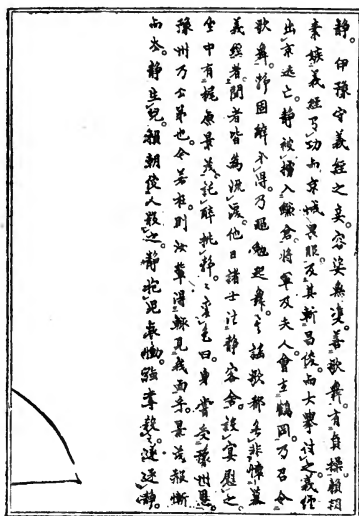 靜。伊豫守義經之妾。容姿無雙善歌舞。有貞操。賴朝
素嫉義經有功而京城畏服。及其斬昌俊。而大擧伐之。義經
出京逃亡。靜被擒入鎌倉。將軍及夫人會于鶴岡。乃召令
歌舞。靜固辭不得。乃黽勉起舞。其謠歌都無非悽慕
義經者。聞者皆爲流涙。他日諸士往靜客舍。設宴慰之。
坐中有梶原景茂。託醉挑靜。靜變色曰。身嘗受豫州恩。
豫州乃公弟也。令若在則汝輩得輙見我面乎。景茂赧慚
而去。靜生兒。賴朝使人殺之。靜抱兒哀慟。強奪殺之。遂逐靜。